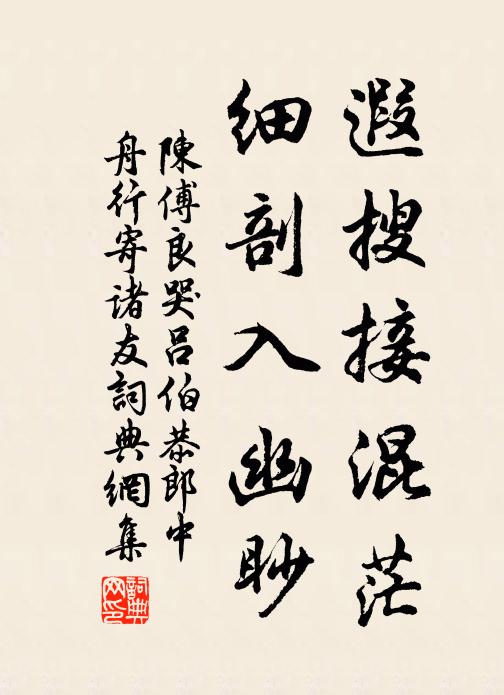 遐搜接混茫
細剖入幽眇
陳傅良哭呂伯恭郎中
舟行寄諸友詞典網集
詞典網印